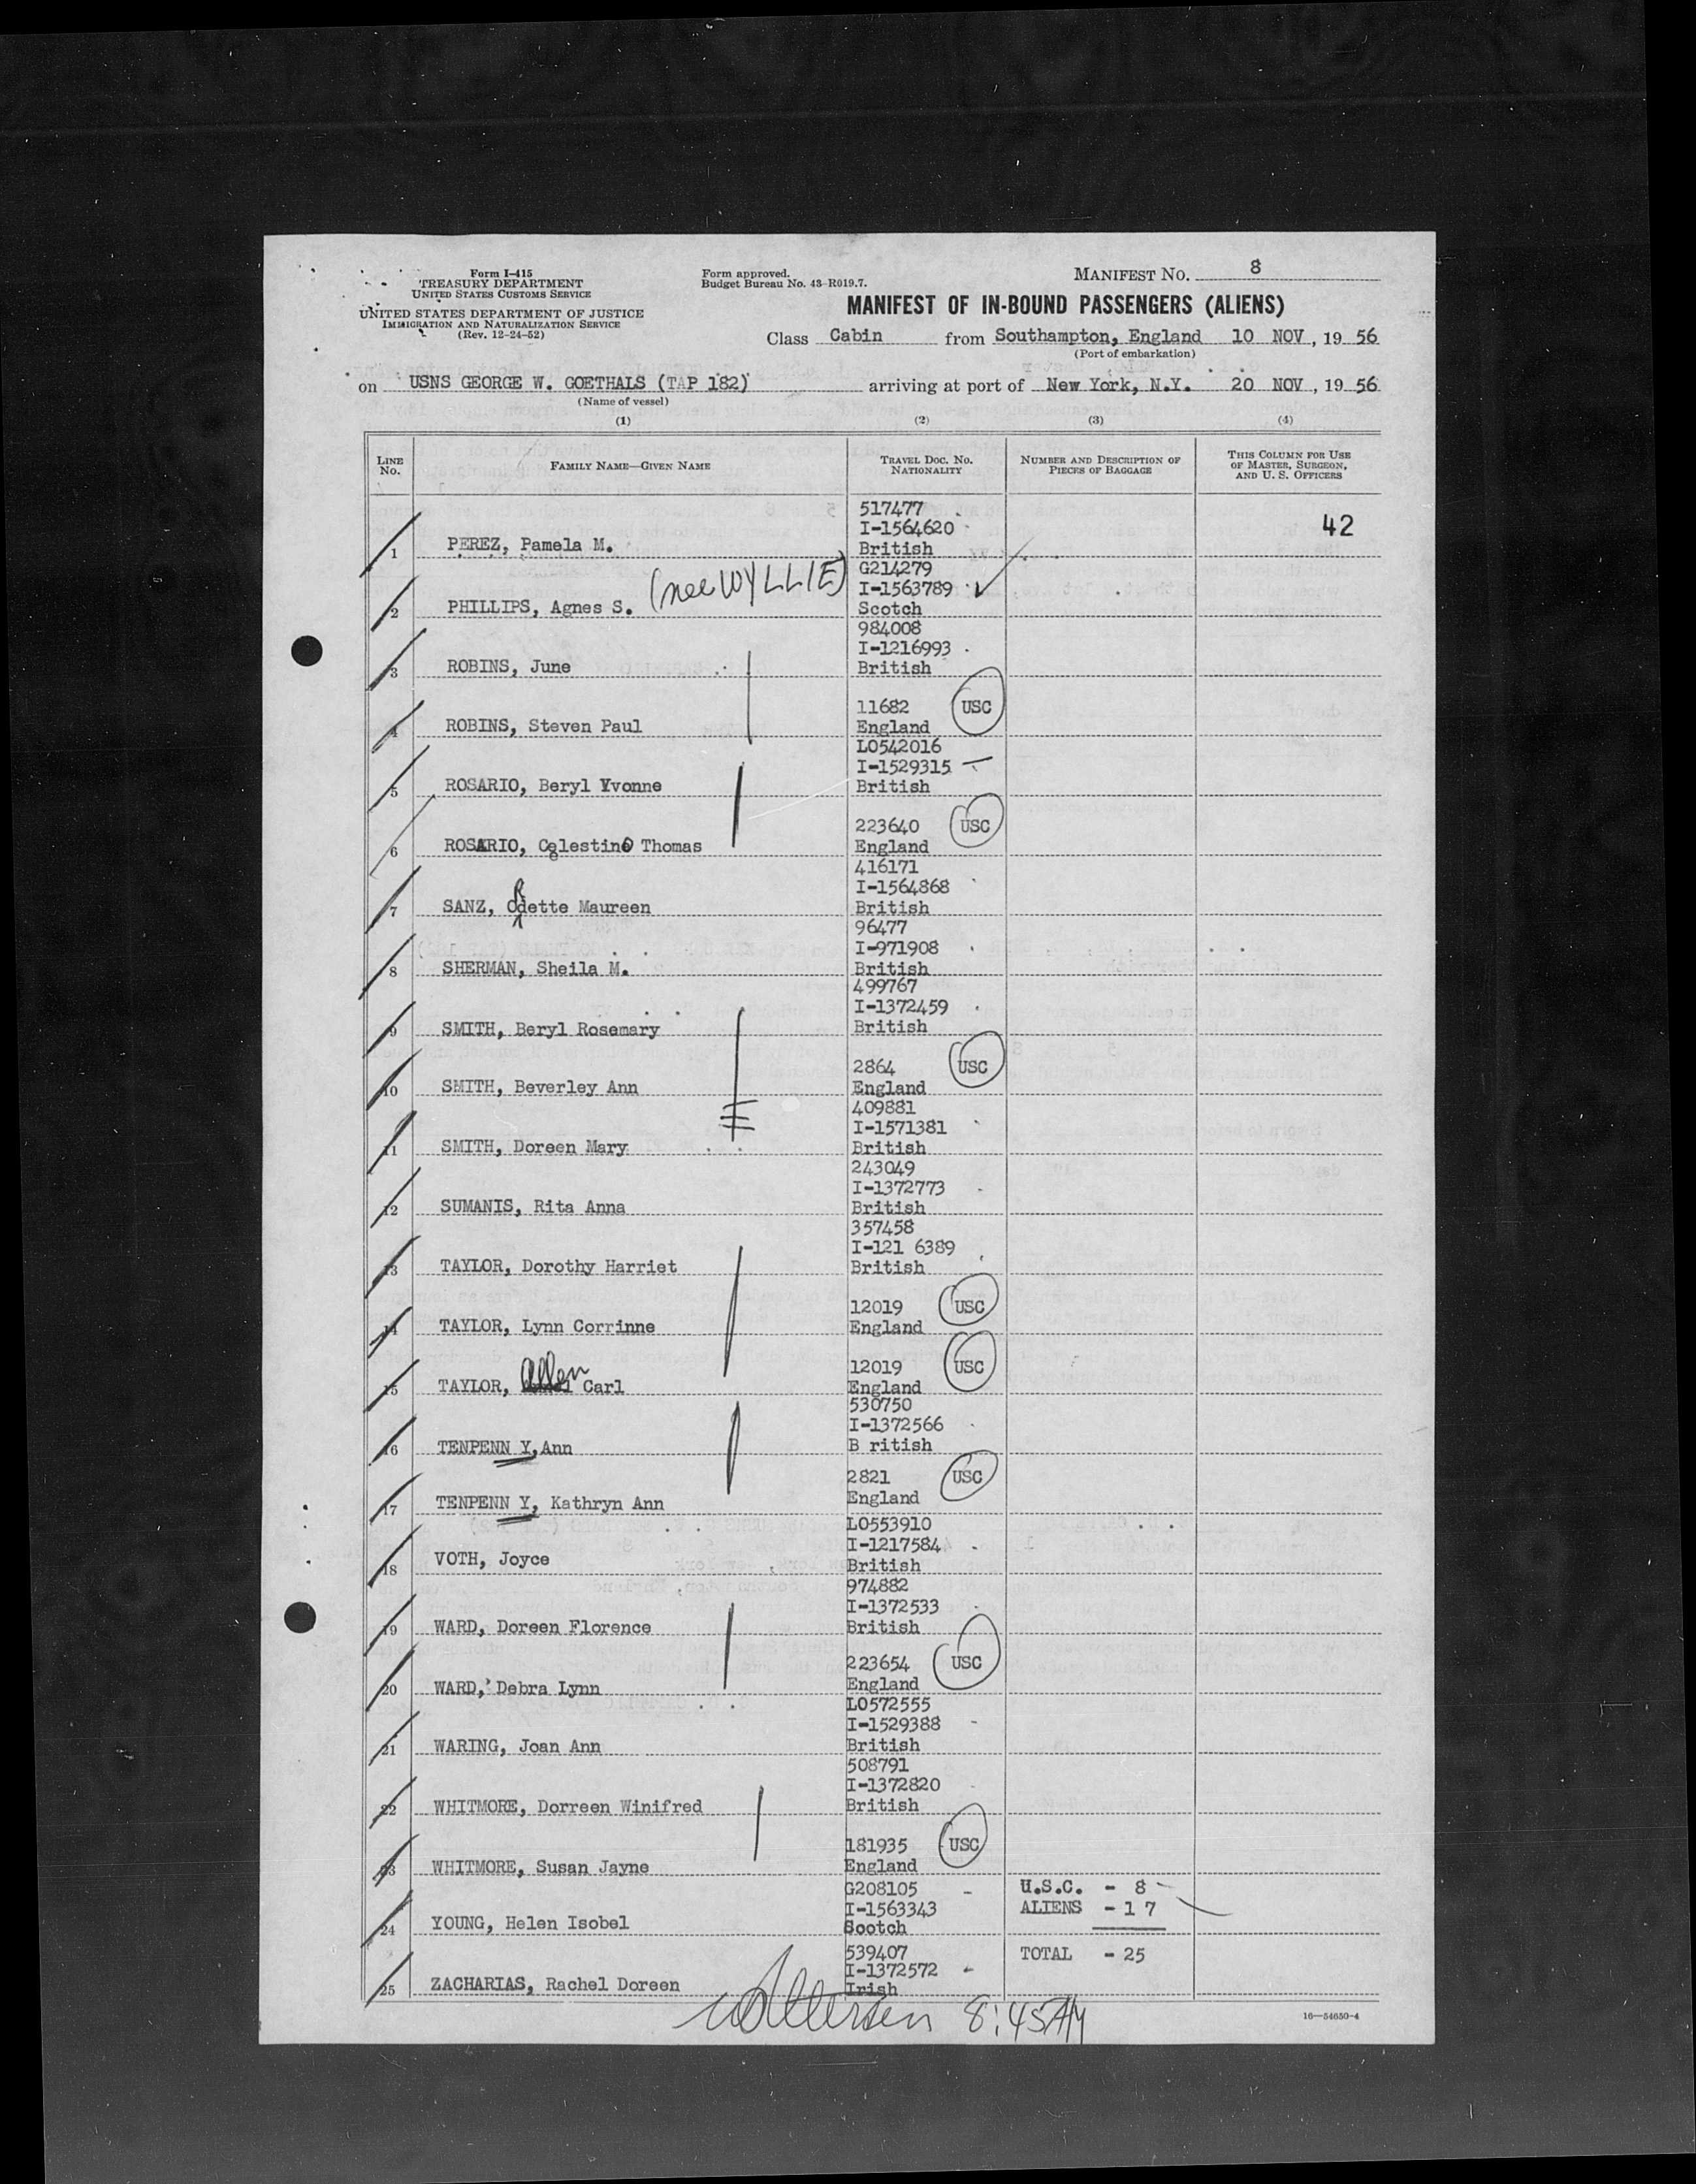 Form I-415
TREASURY DEPARTMENT
UNITED STATES CUSTOMS SERVICE
UNITED STATES DEPARTMENT OF JUSTICE
IMMIGRATION AND NATURALIZATION SERVICE
(Rev. 12-24-52)
Form approved.
Budget Bureau No. 43-R019.7.
MANIFEST No. 8
MANIFEST OF IN-BOUND PASSENGERS (ALIENS)
Class Cabin from Southampton, England 10 NOV, 19 56
(Port of embarkation)
on USNS GEORGE W. GOETHALS (TAP 182) arriving at port of New York, N.Y. 20 NOV, 19 56
(Name of vessel)
(1) (2) (3) (4)
LINE No. FAMILY NAME—GIVEN NAME TRAVEL DOC. NO. NATIONALITY NUMBER AND DESCRIPTION OF PIECES OF BAGGAGE THIS COLUMN FOR USE OF MASTER, SURGEON, AND U. S. OFFICERS
517477
I-1564620 42
1 PEREZ, Pamela M. British
G214279
I-1563789
2 PHILLIPS, Agnes S. (nee WYLLIE) Scotch
984008
I-1216993
3 ROBINS, June British
11682 USC
4 ROBINS, Steven Paul England
L0542016
I-1529315
5 ROSARIO, Beryl Yvonne British
223640 USC
6 ROSARIO, Celestino Thomas England
416171
I-1564868
R
7 SANZ, Odette Maureen British
96477
I-971908
8 SHERMAN, Sheila M. British
499767
I-1372459
9 SMITH, Beryl Rosemary British
2864 USC
10 SMITH, Beverley Ann England
409881
I-1571381
11 SMITH, Doreen Mary British
243049
I-1372773
12 SUMANIS, Rita Anna British
357458
I-121 6389
13 TAYLOR, Dorothy Harriet British
12019 USC
14 TAYLOR, Lynn Corrinne England
12019 USC
15 TAYLOR, Allen Carl England
530750
I-1372566
16 TENPENN Y, Ann B ritish
2821 USC
17 TENPENN Y, Kathryn Ann England
L0553910
I-1217584
18 VOTH, Joyce British
974882
I-1372533
19 WARD, Doreen Florence British
223654 USC
20 WARD, Debra Lynn England
L0572555
I-1529388
21 WARING, Joan Ann British
508791
I-1372820
22 WHITMORE, Dorreen Winifred British
181935 USC
23 WHITMORE, Susan Jayne England
G208105 U.S.C. - 8
I-1563343 ALIENS - 1 7
24 YOUNG, Helen Isobel Scotch
539407 TOTAL - 25
I-1372572
25 ZACHARIAS, Rachel Doreen Irish
8:45AM
16—54650-4